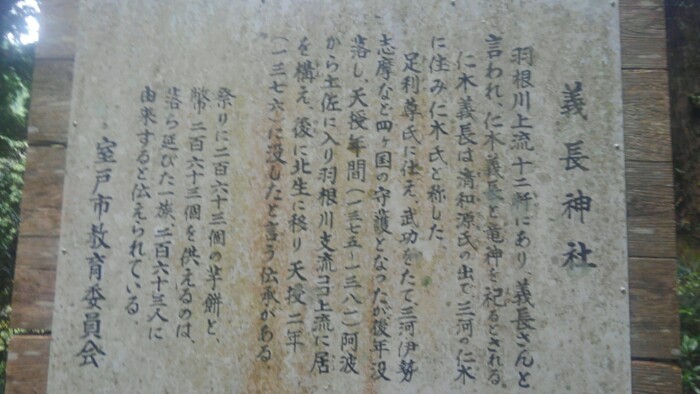 義長神社
羽根川上流十二所にあり、義長さんと
言われ、仁木義長と竜神を祀るとされる
仁木義長は清和源氏の出で三河の仁木
に住み仁木氏と称した。
足利尊氏に仕え、武功をたて、三河伊勢
志摩など四ヶ国の守護となったが後年没
落し、天授年間(一三七五〜一三八一)阿波
から土佐に入り羽根川支流ココ上流に居
を構え、後に北生に移り天授二年
(一三七六)に没したと言う伝承がある。
祭りに二百六十三個の芋餅と、
幣二百六十三個を供えるのは、
落ち延びた一族、二百六十三人に
由来すると伝えられている。
室戸市教育委員会